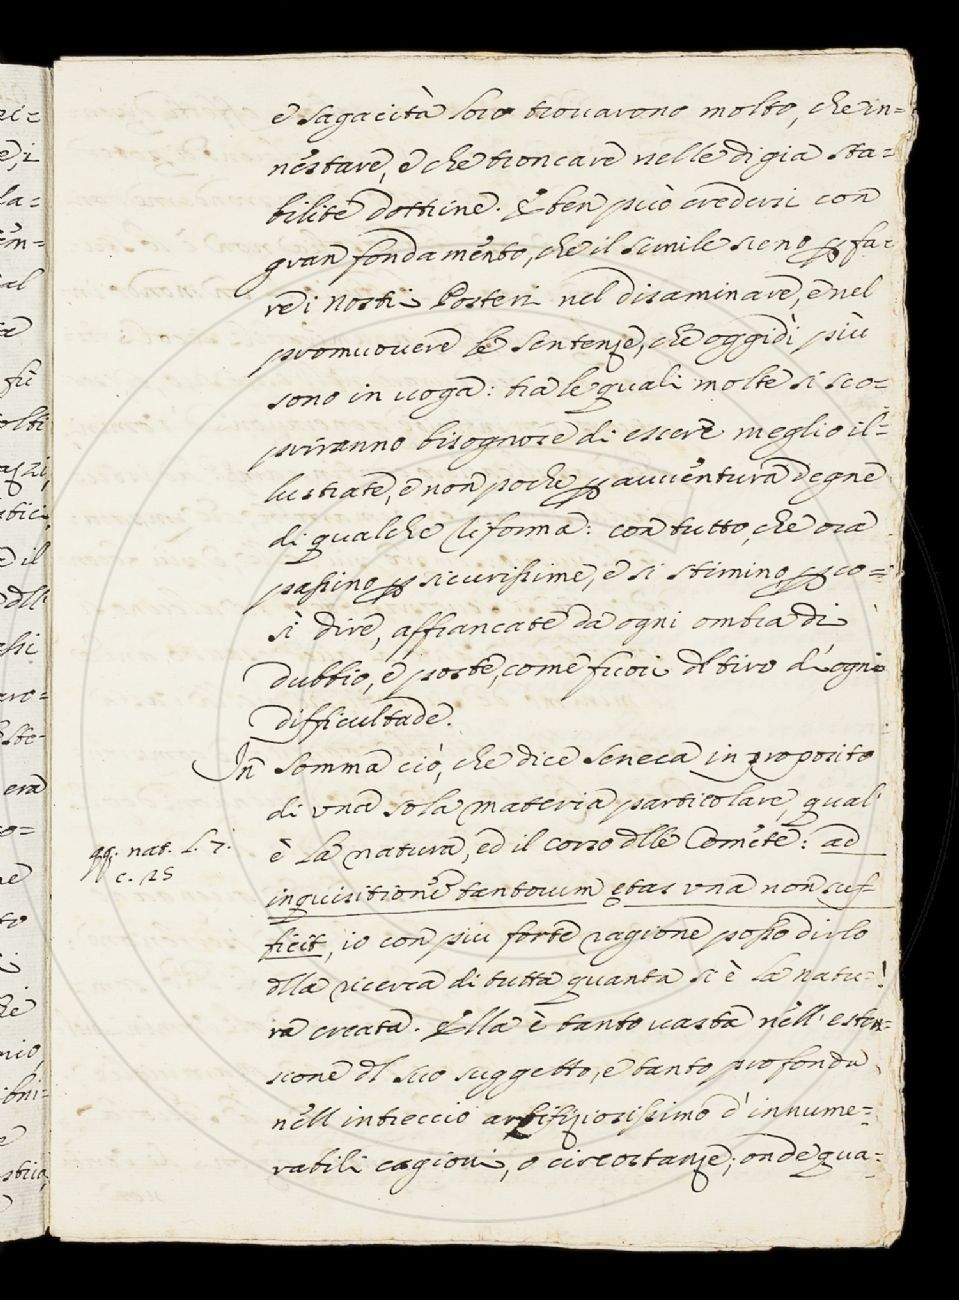 e sagacità loro trouarono molto, che in=
nestare, e che troncare nelle di gia sta=
bilite dottrine. E ben può credersi con
gran fondamento, che il simile sieno p fa=
re i nostri Posteri nel disaminare, e nel
promuouere le sentenze, che oggidì più
sono in uoga: tra le quali molte si sco=
priranno bisognose di essere meglio il=
lustrate, e non poche p auuentura degne
di qualche riforma: con tutto, che ora
passino p sicurissime, e si stimino, p co=
sì dire, affrancate da ogni ombra di
dubbio, e poste, come fuori dl tiro d' ogni
difficultade.
In somma ciò, che dice Seneca in proposito
di vna sola materia particolare, qual
è la natura, ed il corso dlle Comete: ad
qq. nat. L. 7.
c. 25
inquisitione tantorum ętas vna non suf
ficit, io con piu forte ragione posso dirlo
dlla ricerca di tutta quanta si è la natu=
ra creata. Ella è tanto uasta nell' esten=
sione dl suo suggetto, e tanto profonda
nell intreccio artifiziosissimo d' innume=
rabili cagioni, o circostanze; onde qua=